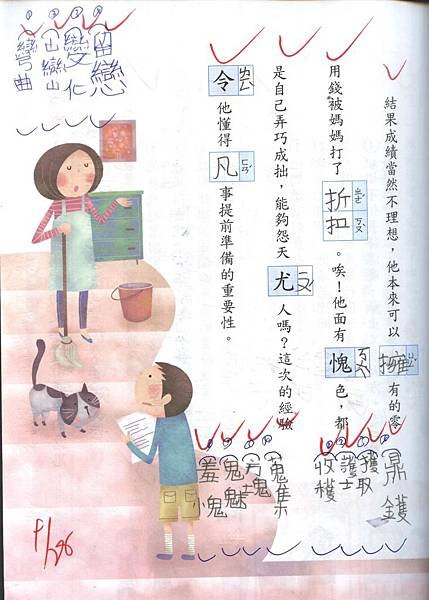 結果成績當然不理想,他本來可以擁有的零
用錢被媽媽打了折扣。唉!他面有愧色,都
是自己弄巧成拙,能夠怨天尤人嗎?這次的經驗
令他懂得凡事提前準備的重要性。
鼎鑊
獲取
護士
收穫
蒐集
方塊
鬼魅
羞愧
留戀
變化
山巒
彎曲